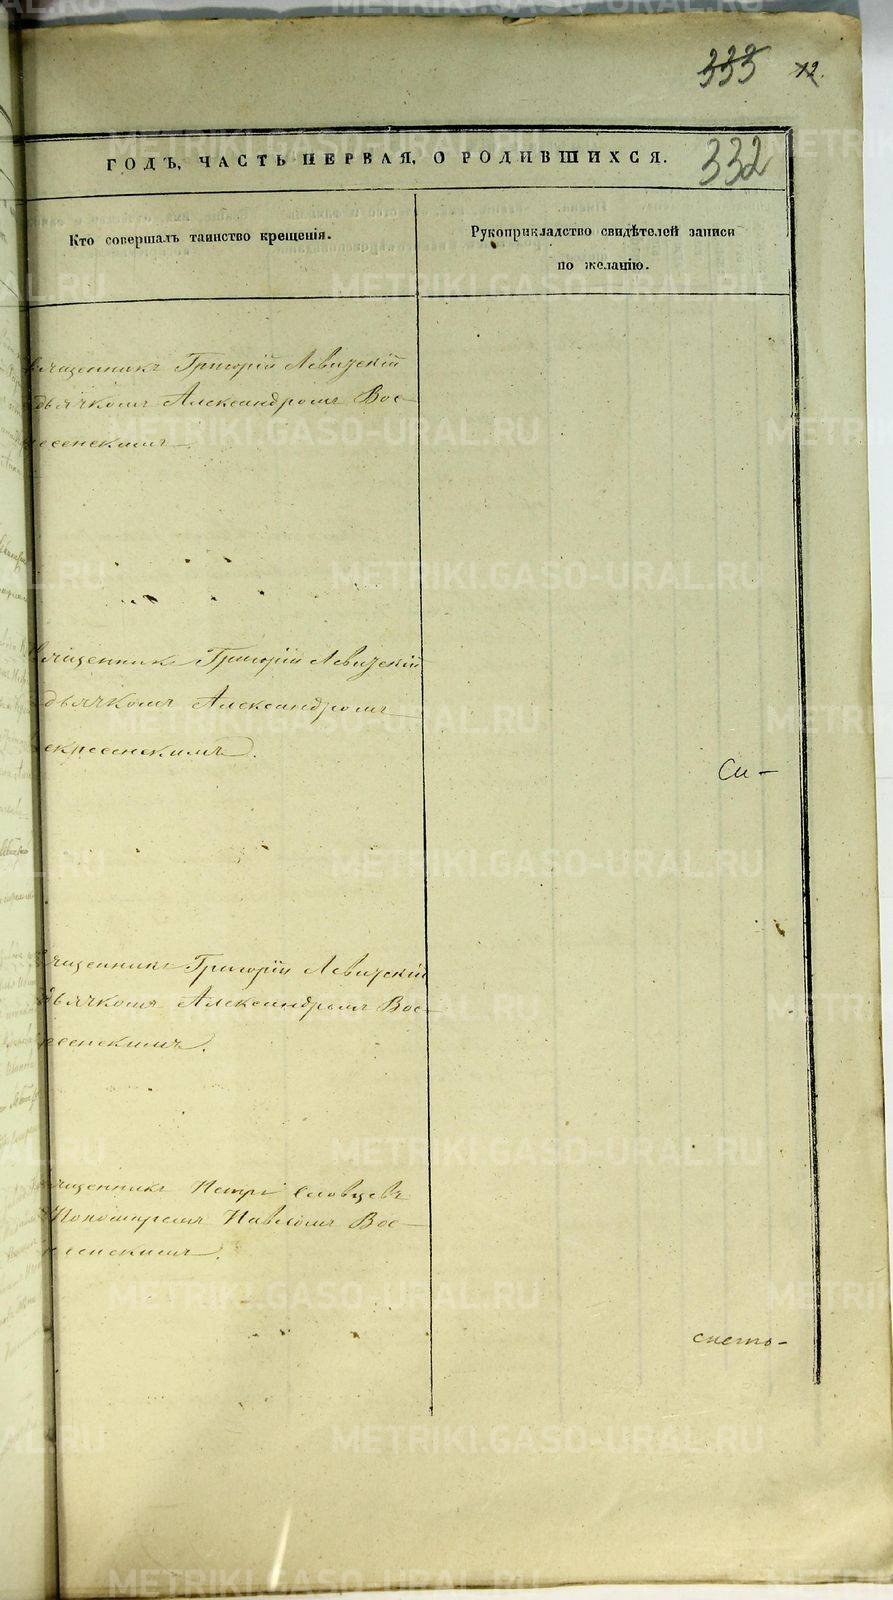 333 12.
ГОДЪ, ЧАСТЬ ПЕРВАЯ, О РОДИВШИХСЯ. 332
Кто совершалъ таинство крещенія.
Рукоприкладство свидѣтелей записи
по желанію.
щенникъ Григорій Левицкій
дьячкомъ Александромъ Вос-
ресенскимъ
щенникъ Григорій Левицкій
дьячкомъ Александромъ
скресенскимъ.
Си-
щенникъ Григорій Левицкій
дьячкомъ Александромъ Вос-
ресенскимъ.
щенникъ Петръ Словцевъ
Пономаремъ Павломъ Вос-
ресенскимъ.
METRIKI.GASO-URAL.RU